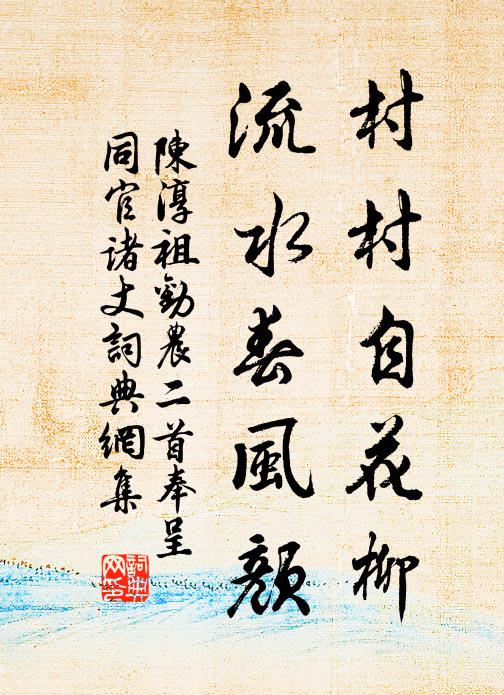 村村自花柳
流水春風顏
陳淳祖勸農二首奉呈
同官諸丈詞典網集
詞典
网印